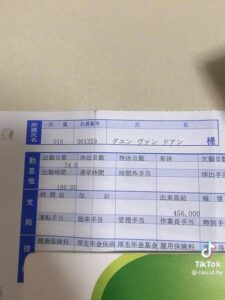 所属 社員番号 氏名
所属氏名 016 001329 グエン ヴァン ドアン 様
勤怠他 出勤日数 休出日数 特休日数 有休 欠勤日数
24.0
出勤時間 遅早時間 時間外手当 休出手
186:00
支給 時間給 出来高給
456,000
運転手当 皆卒手当 管理手当 作業長手当 特別手
控 健康保険料 厚生年金保険 厚生年金基金 雇用保険料
TikTok